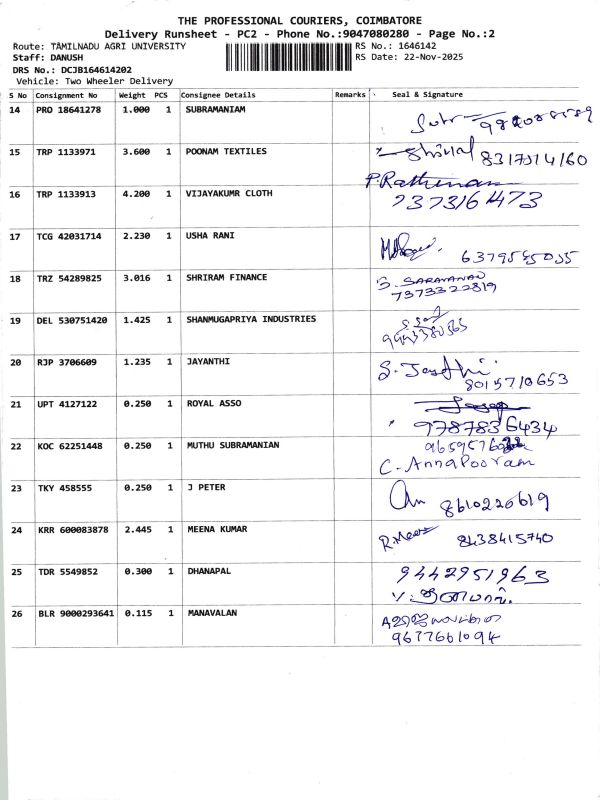 THE PROFESSIONAL COURIERS, COIMBATORE
Delivery Runsheet - PC2 - Phone No.:9047080280 - Page No.:2
Route: TAMILNADU AGRI UNIVERSITY
RS No.: 1646142
Staff: DANUSH
RS Date: 22-Nov-2025
DRS No.: DCJB164614202
Vehicle: Two Wheeler Delivery
S No Consignment No Weight PCS Consignee Details Remarks Seal & Signature
14 PRO 18641278 1.000 1 SUBRAMANIAM
15 TRP 1133971 3.600 1 POONAM TEXTILES
P.Rathinam
16 TRP 1133913 4.200 1 VIJAYAKUMR CLOTH
737316473
17 TCG 42031714 2.230 1 USHA RANI
18 TRZ 54289825 3.016 1 SHRIRAM FINANCE
S. SARAVANAN
7373322819
19 DEL 530751420 1.425 1 SHANMUGAPRIYA INDUSTRIES
20 RJP 3706609 1.235 1 JAYANTHI
8015710653
21 UPT 4127122 0.250 1 ROYAL ASSO
9787836434
22 KOC 62251448 0.250 1 MUTHU SUBRAMANIAN
C. Annapooram
23 TKY 458555 0.250 1 J PETER
8610226619
24 KRR 600083878 2.445 1 MEENA KUMAR
R.Meena 8438415740
25 TDR 5549852 0.300 1 DHANAPAL
9442951963
26 BLR 9000293641 0.115 1 MANAVALAN
9677661094